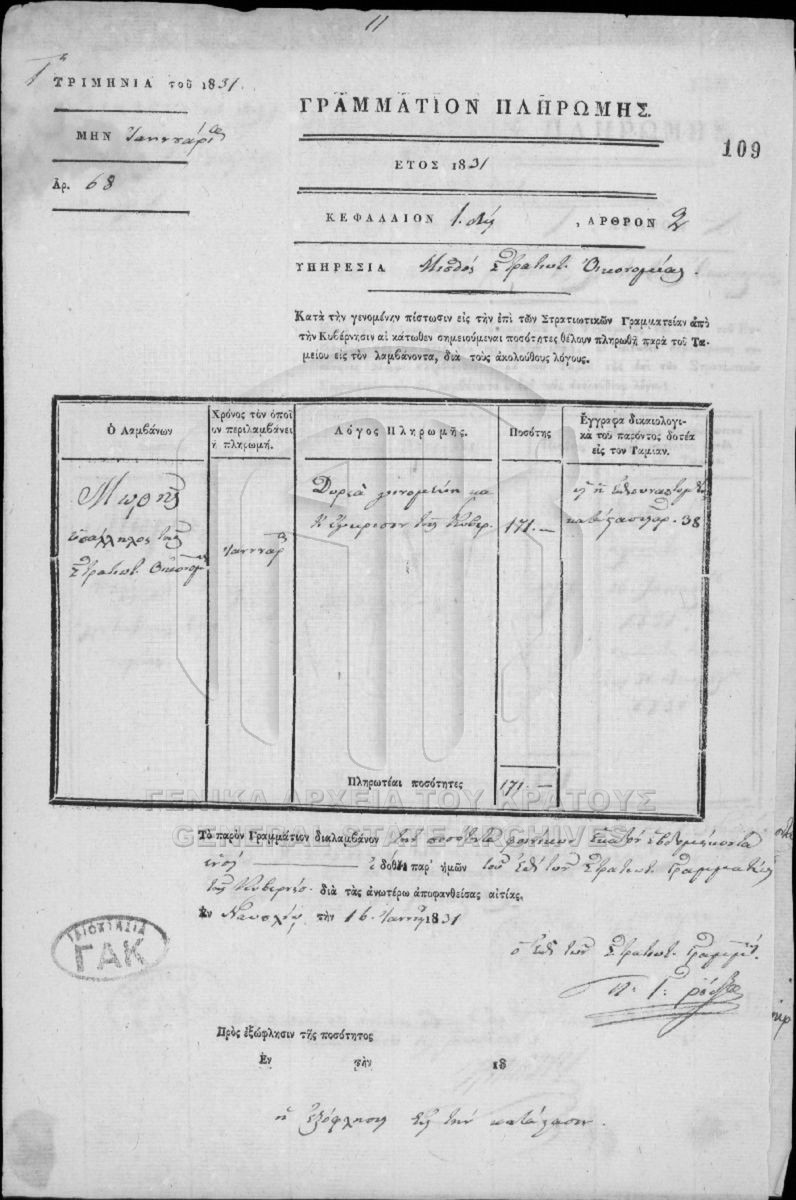 11
Α΄ ΤΡΙΜΗΝΙΑ τοῦ 1831.
ΜΗΝ Ἰαννουάριος
Ἀρ. 68
ΓΡΑΜΜΑΤΙΟΝ ΠΛΗΡΩΜΗΣ.
109
ΕΤΟΣ 1831
ΚΕΦΑΛΑΙΟΝ 1. , ΑΡΘΡΟΝ 2
ΥΠΗΡΕΣΙΑ Μισθὸς Στρατιωτ. Οἰκονομίας.
Κατὰ τὴν γενομένην πίστωσιν εἰς τὴν ἐπὶ τῶν Στρατιωτικῶν Γραμματείαν ἀπὸ
τὴν Κυβέρνησιν αἱ κάτωθεν σημειούμεναι ποσότητες θέλουν πληρωθῆ παρὰ τοῦ Τα-
μείου εἰς τὸν λαμβάνοντα, διὰ τοὺς ἀκολούθους λόγους.
Ὁ Λαμβάνων
Χρόνος τὸν ὁποῖ
ον περιλαμβάνει
ἡ πληρωμή.
Λόγος Πληρωμῆς.
Ποσότης
Ἔγγραφα δικαιολογι-
κὰ τοῦ παρόντος δοτέα
εἰς τὸν Ταμίαν.
ὑπάλληλος τῆς
Στρατιωτ. Οἰκονομ
Ἰαννουάρ
Δωρεὰ γενομένη κα
τ' ἔγκρισιν τῆς Κυβερ.
171.—
38
Πληρωτέαι ποσότητες 171.—
ΓΕΝΙΚΑ ΑΡΧΕΙΑ ΤΟΥ ΚΡΑΤΟΥΣ
GENERAL STATE ARCHIVES
Τὸ παρὸν Γραμμάτιον διαλαμβάνον τὴν ποσότητα φοινίκων ἑκατὸν ἑβδομήκοντα
ἑνὸς ἐδόθη παρ' ἡμῶν τοῦ ἐπὶ τῶν Στρατιωτ. Γραμματέως
τῆς Κυβερνήσ. διὰ τὰς ἀνωτέρω ἀποφανθείσας αἰτίας.
Ἐν Ναυπλίῳ τὴν 16 Ἰαννουαρ 1831
ΙΔΙΟΚΤΗΣΙΑ
ΓΑΚ
ὁ ἐπὶ τῶν Στρατιωτ. Γραμμ.
Πρὸς ἐξώφλησιν τῆς ποσότητος
Ἐν τὴν 18
ἡ ἐξόφλησις εἰς τὴν κατάστασιν.